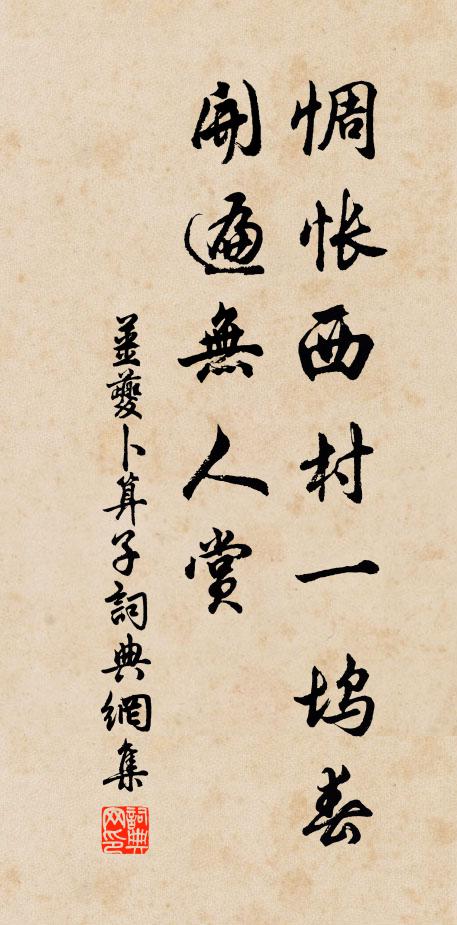 惆怅西村一坞春
開遍無人賞
姜夔卜算子詞典網集
詞典网印